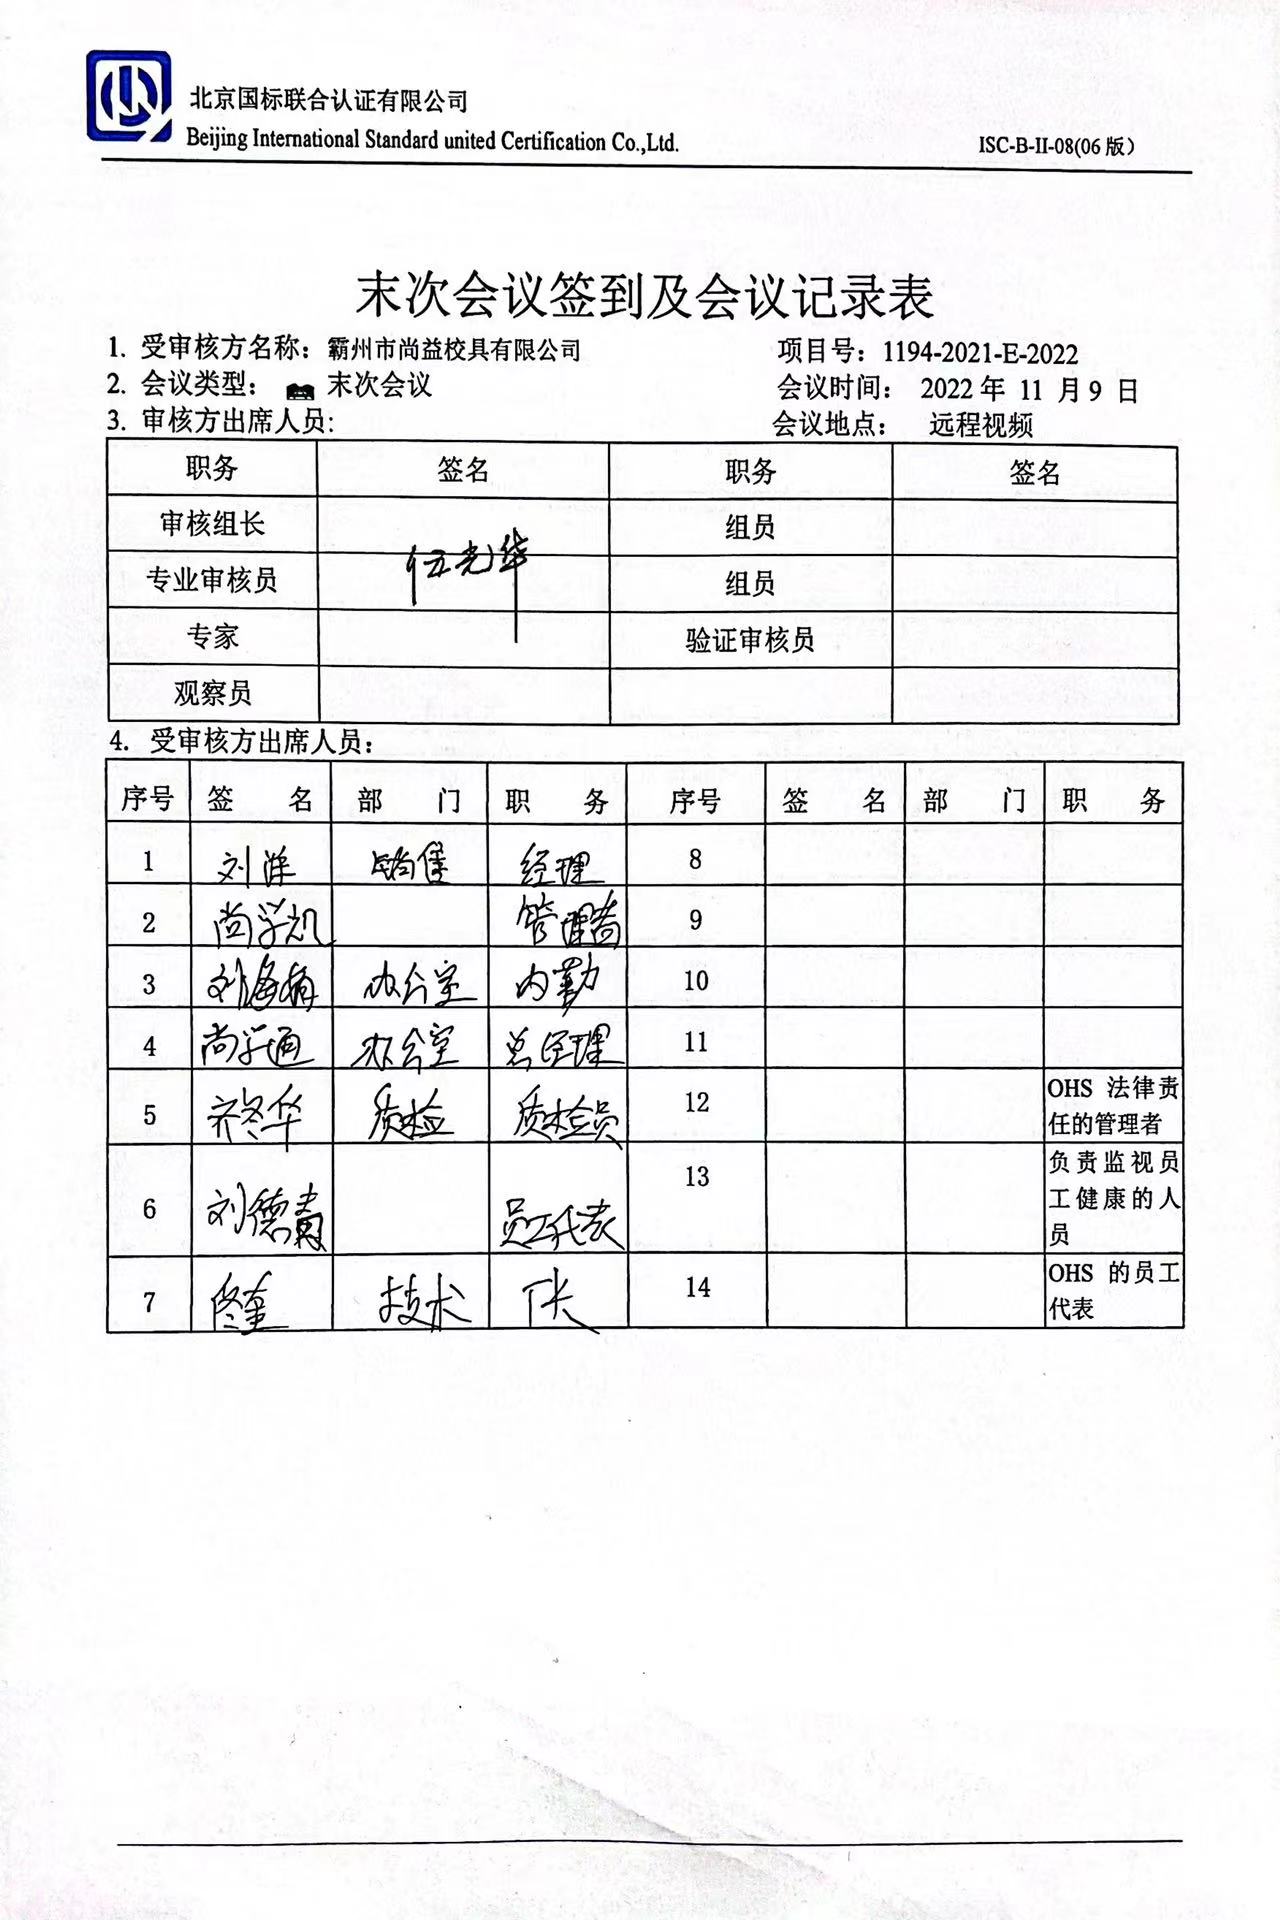 北京国标联合认证有限公司
Beijing International Standard united Certification Co.,Ltd.
ISC-B-II-08(06 版)
末次会议签到及会议记录表
1. 受审核方名称：霸州市尚益校具有限公司 项目号：1194-2021-E-2022
2. 会议类型： 末次会议 会议时间： 2022 年 11 月 9 日
3. 审核方出席人员: 会议地点： 远程视频
职务 签名 职务 签名
审核组长 组员
伍光华
专业审核员 组员
专家 验证审核员
观察员
4. 受审核方出席人员：
序号 签 名 部 门 职 务 序号 签 名 部 门 职 务
1 刘洋 销售 经理 8
2 尚学 管理者 9
3 刘海 办公室 内勤 10
4 尚学通 办公室 总经理 11
5 齐冬华 质检 质检员 12 OHS 法律责
任的管理者
6 刘德青 员工代表 13 负责监视员
工健康的人
员
7 佟奎 技术 厂长 14 OHS 的员工
代表